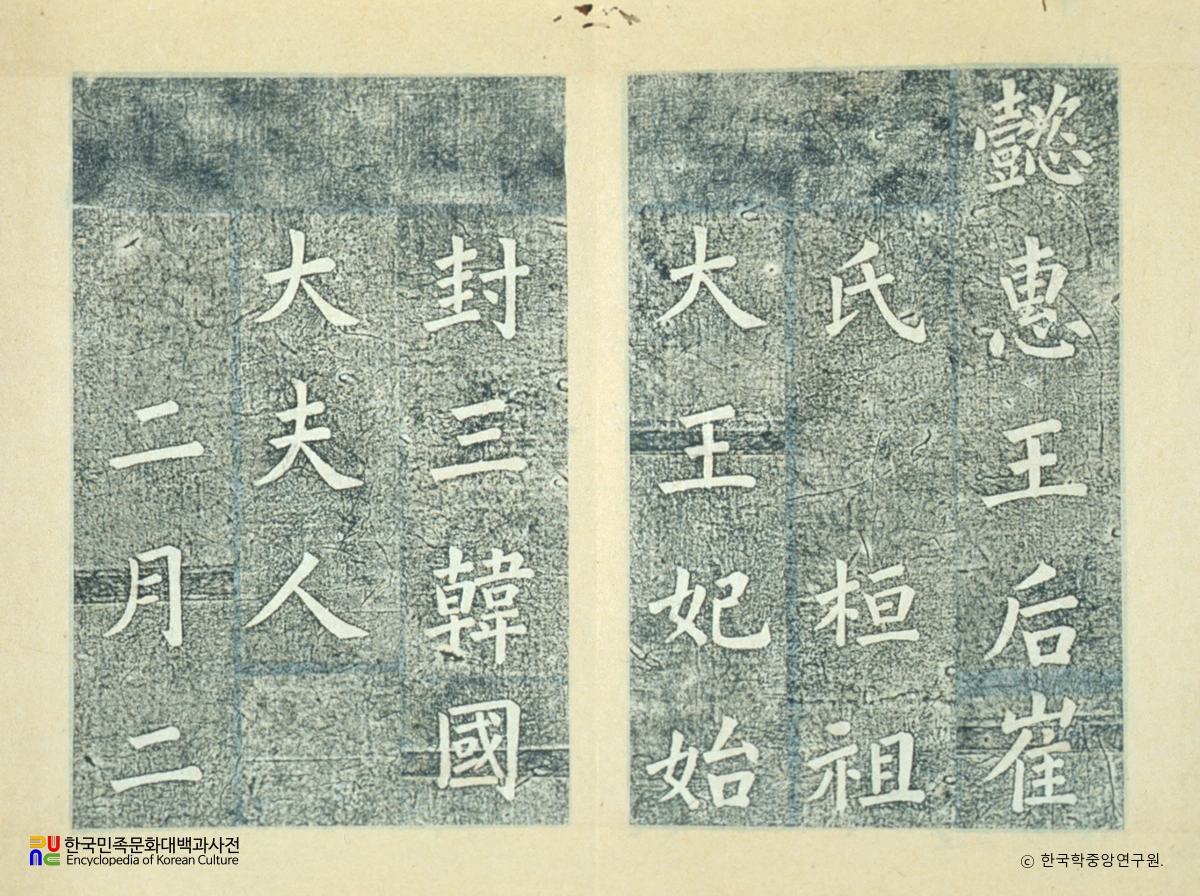 懿惠王后崔
氏桓祖
大王妃始
封三韓國
大夫人
二月二
한국민족문화대백과사전
Encyclopedia of Korean Culture
ⓒ 한국학중앙연구원.